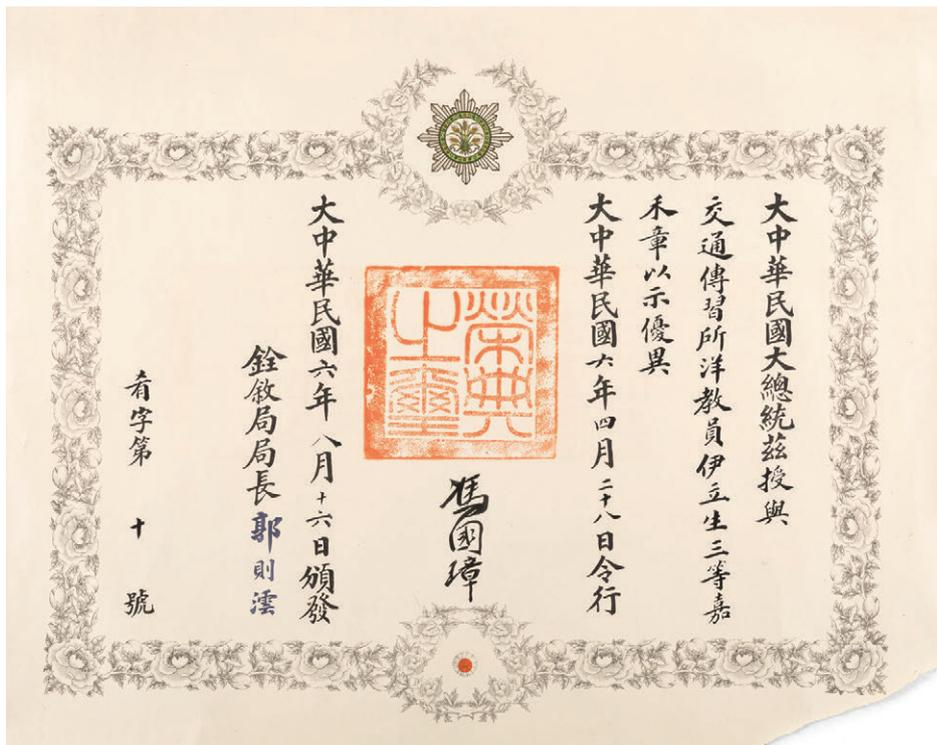 大中華民國大總統茲授與
交通傳習所洋教員伊立生三等嘉
禾章以示優異
大中華民國六年四月二十八日令行
榮典之璽
馮國璋
大中華民國六年八月十六日頒發
銓敘局局長郭則澐
肴字第十號